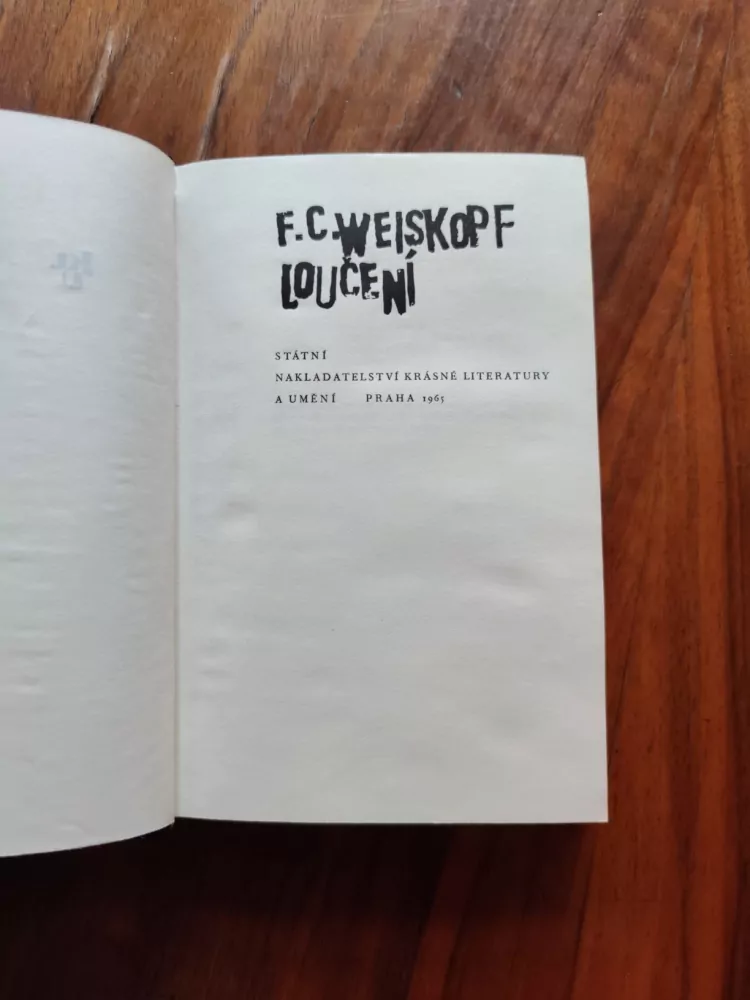 F.C.WEISKOPF
LOUČENÍ
STÁTNÍ
NAKLADATELSTVÍ KRÁSNÉ LITERATURY
A UMĚNÍ PRAHA 1965